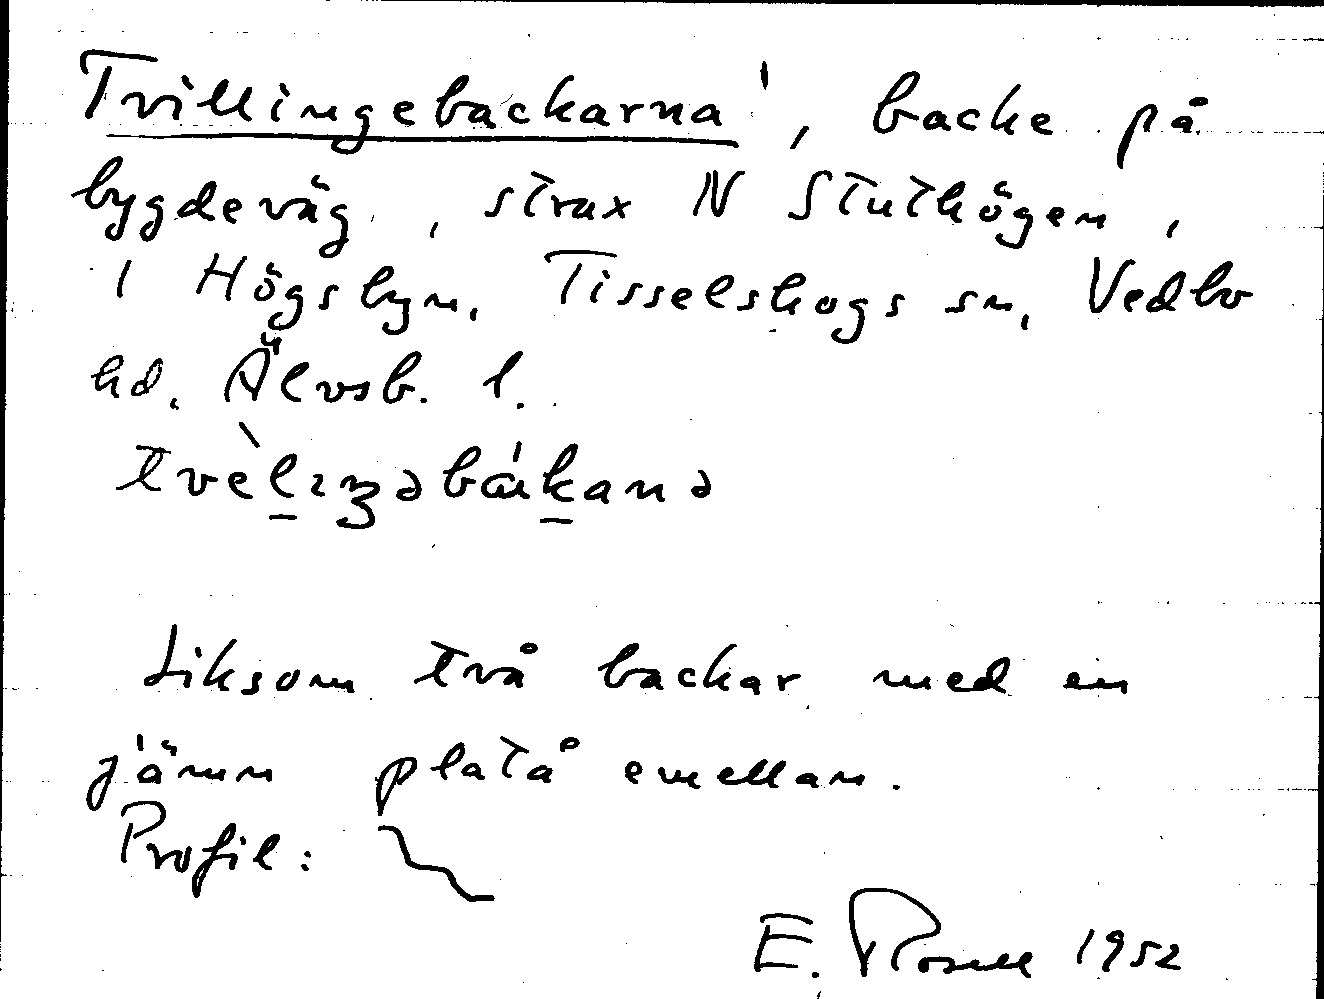 Tvillingebackarna', backe på
bygdeväg, strax N Stuthögen,
i Högsbyn, Tisselskogs sn, Vedbo
hd. Älvsb. l.
Liksom två backar med en
jämn platå emellan.
Profil:
E. Rosell 1952